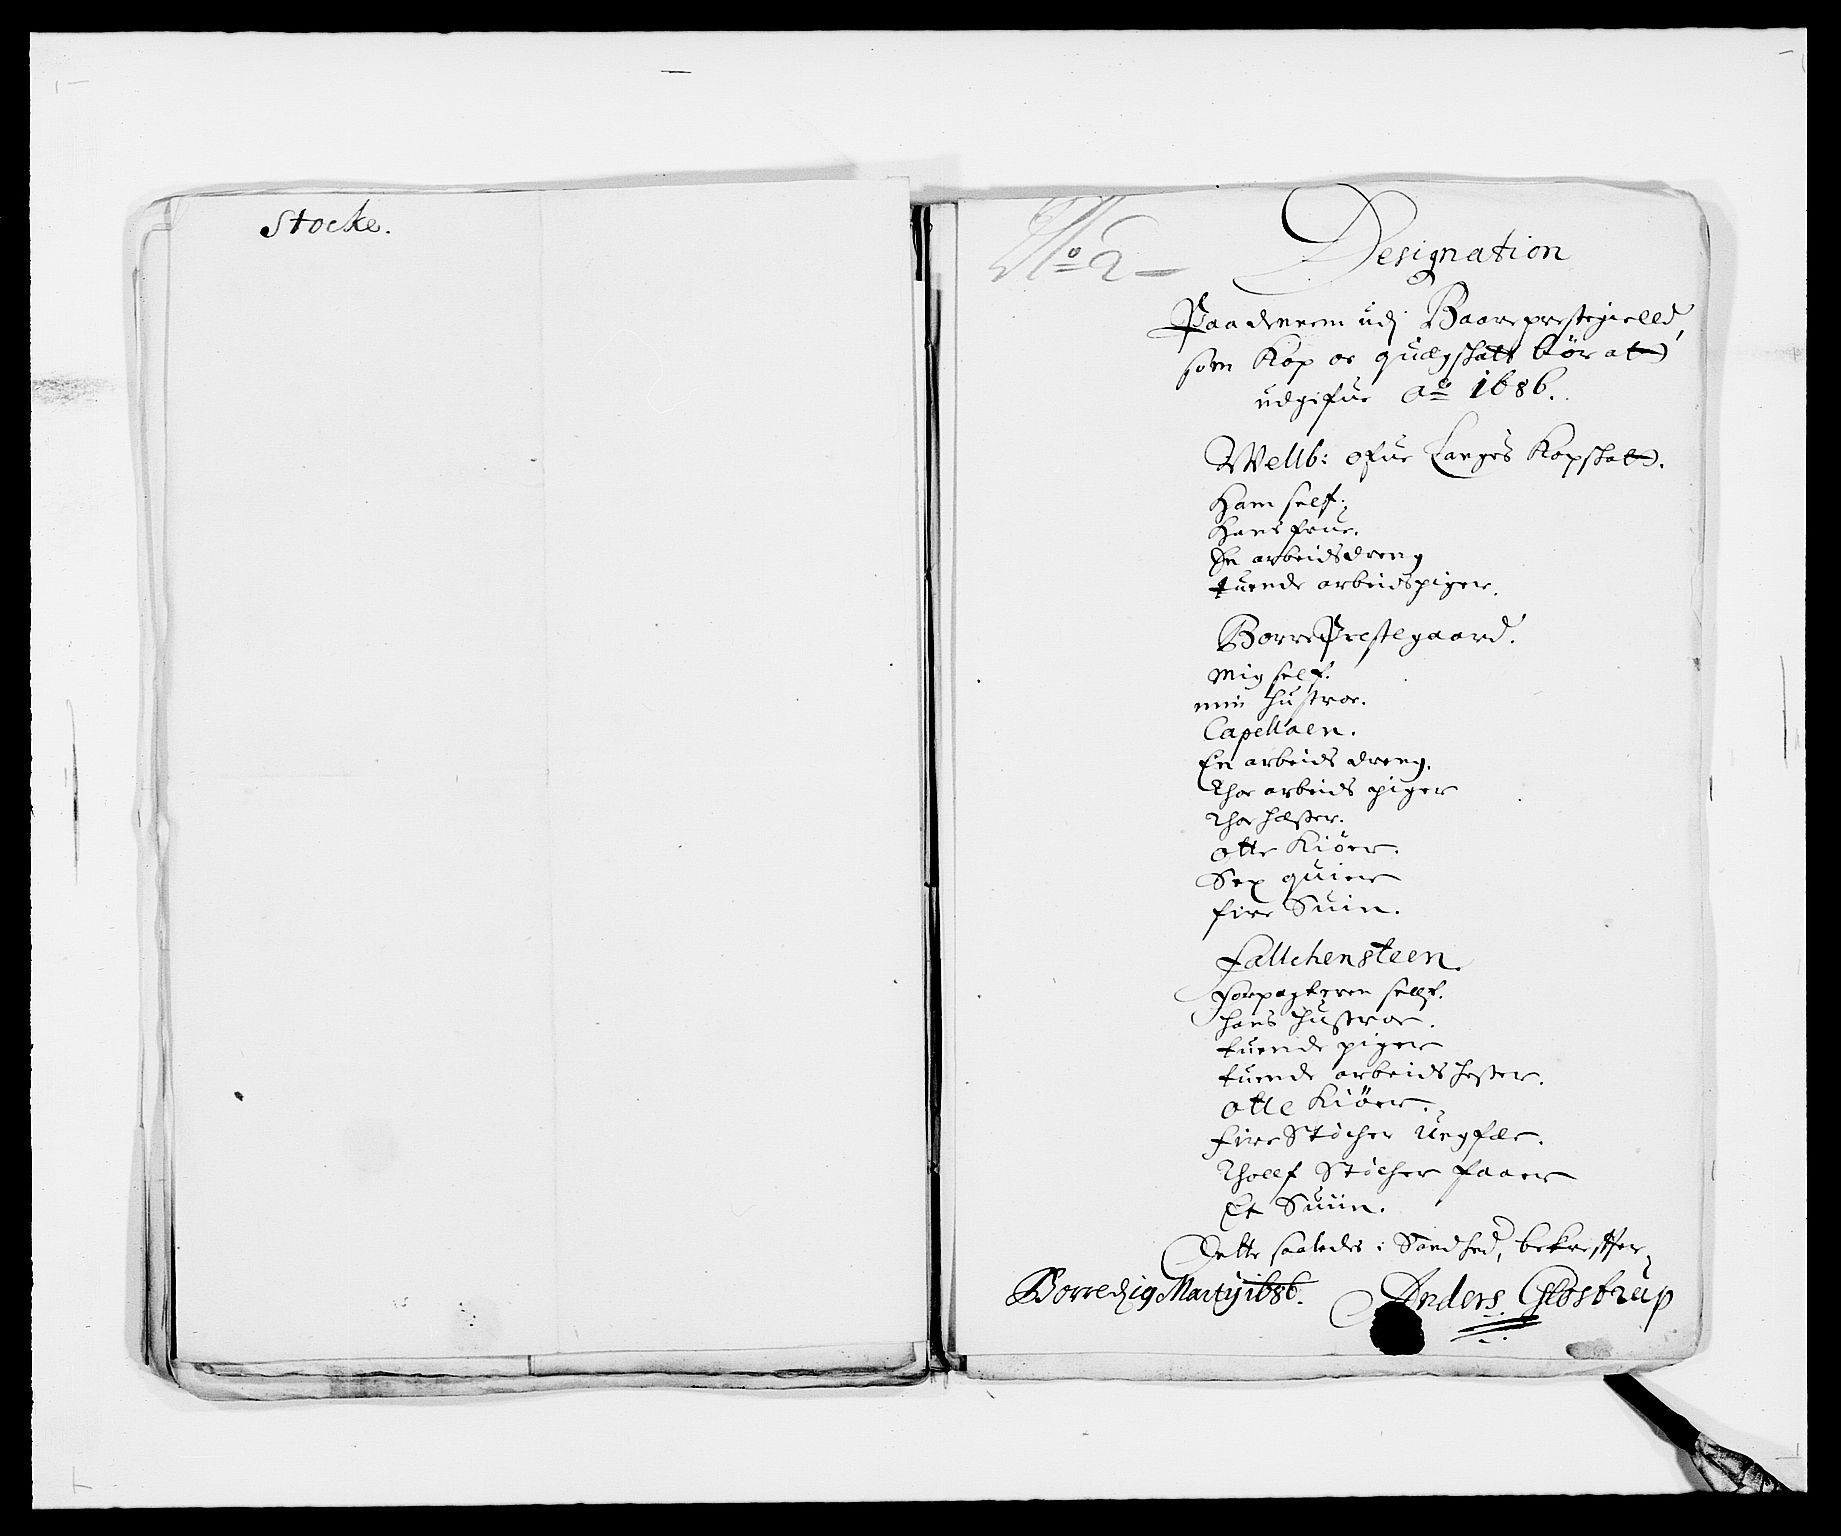 Stocke.
No 2
Designation
Paa dennem udj Baare prestegielld,
som Kop oc quegskatt bør att
udgifue Ao 1686.
Wellb: ofue Langes Kopskatt.
Ham self.
Hans frue.
En arbeidsdreng
tuende arbeidspiger.
Borre Prestegaard.
Mig self.
min hustroe.
Capellaen.
En arbeids dreng.
Thoe arbeids piger
Thoe hæster.
otte Kiöer.
Sex quier
fire Suin.
Falchensteen.
Forpagteren sellf.
hans hustroe.
tuende piger
tuende arbeids hester.
otte Kiöer.
fire Stöcher Ungfæe.
Thollf Stöcher faaer
Et Suiin.
Dette saaledis i Sandhed, bekrefter
Borre dj 19 Martij 1686. Anders Glostrup